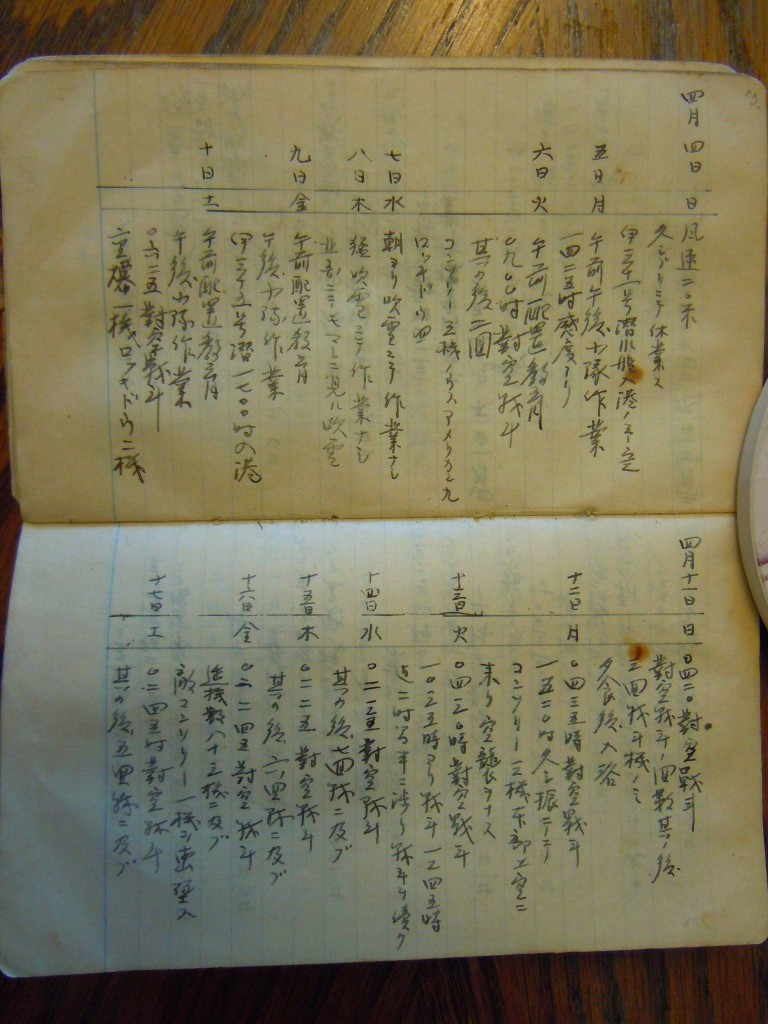 四月四日 日 風速二〇米
久シブリニテ休業ス
伊三十一号潜水艦入港ノ予定
五日 月 午前午後小隊作業
一四二五時感度アリ
六日 火 午前配置教育
〇九〇〇時對空戦斗
其ノ後二回
コンソリー五機
ロッキード四
七日 水 朝ヨリ吹雪ニテ作業ナシ
八日 木 猛吹雪ニテ作業ナシ
見ル吹雪
九日 金 午前配置教育
午後小隊作業
伊三十五号潜一七〇〇時入港
十日 土 午前配置教育
午後小隊作業
〇六二五對空戦斗
重爆一機ロッキード二機
四月十一日 日 〇四二〇對空戦斗
對空戦斗ノ回数其ノ後
三回戦斗機ノミ
夕食後入浴
十二日 月 〇四三五時對空戦斗
一五二〇時久シ振ニ
コンソリー三機本部上空ニ
来リ空襲ヲナス
十三日 火 〇四三〇時對空戦斗
一〇三五時ヨリ戦斗一二四五時
二時间半ニ渉リ戦斗ヲ續ク
十四日 水 〇二三五對空戦斗
其ノ後七回戦ニ及ブ
十五日 木 〇二二五對空戦斗
其ノ後六回戦ニ及ブ
十六日 金 〇二四五對空戦斗
延機数八十三機ニ及ブ
敵コンソリー一機ヲ撃墜ス
十七日 土 〇二四五時對空戦斗
其ノ後五回戦ニ及ブ